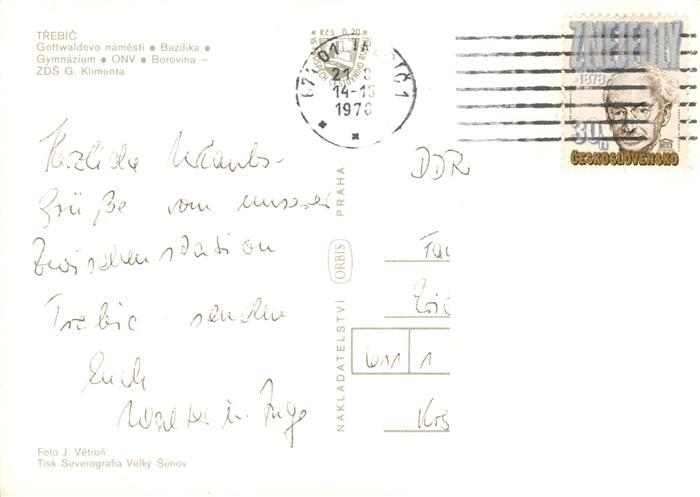 TŘEBÍČ
Gottwaldovo náměstí ● Bazilika ●
Gymnázium ● ONV ● Borovina –
ZDŠ G. Klimenta
Kčs 0,20
TŘEBÍČ 1
14-15
1978
ZNEJEDLÝ
1878
30h
ČESKOSLOVENSKO
Herzliche Urlaubs-
Grüße von unserer
Zwischenstation
Trebic senden
Euch
Walter u. Inge
DDR
611 1
NAKLADATELSTVÍ ORBIS PRAHA
Foto J. Větroň
Tisk Severografia Velký Šenov